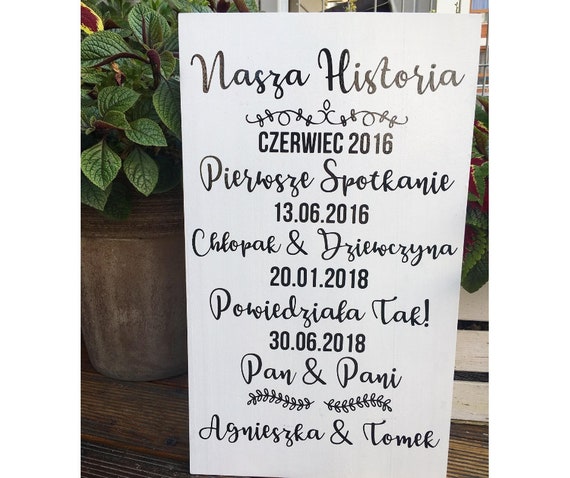 Nasza Historia
CZERWIEC 2016
Pierwsze Spotkanie
13.06.2016
Chłopak & Dziewczyna
20.01.2018
Powiedziała Tak!
30.06.2018
Pan & Pani
Agnieszka & Tomek